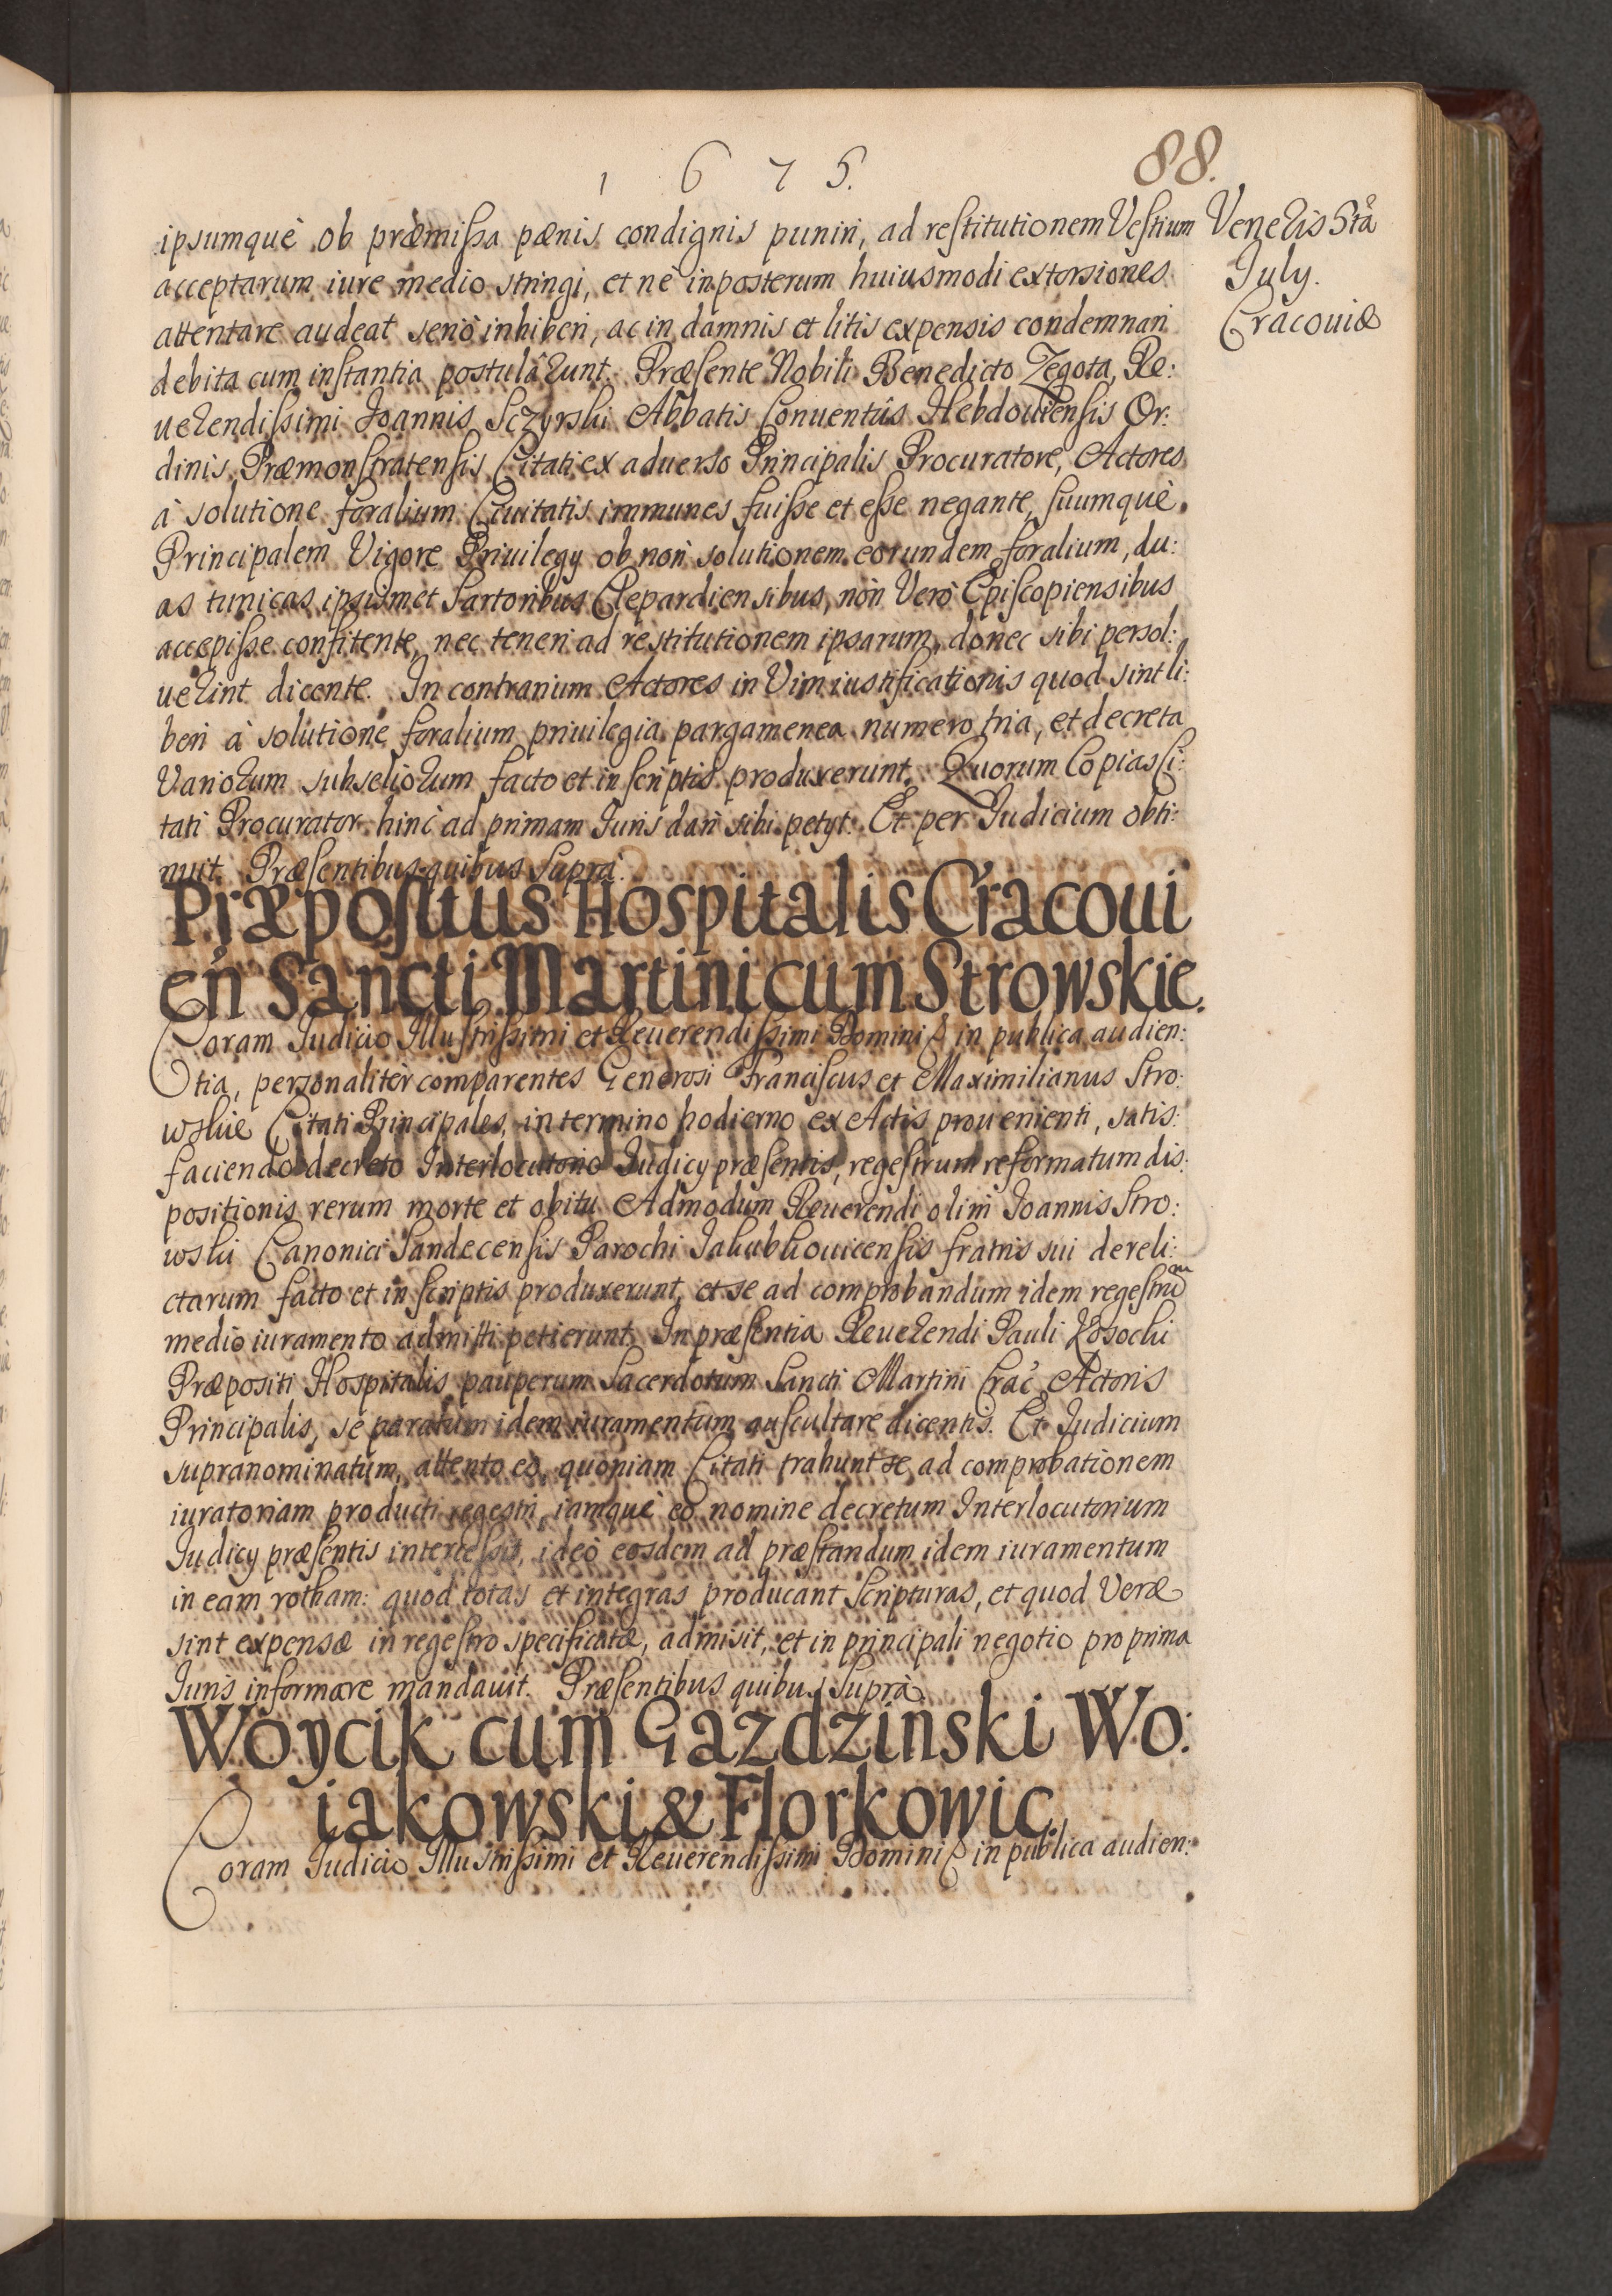 1 6 7 5.
88.
ipsumquè ob præmissa pænis condignis puniri, ad restitutionem Vestium
Veneris 5tâ
July.
Cracouiæ
acceptarum iure medio stringi, et nè inposterum huiusmodi extorsiones
attentare audeat seriò inhiberi, ac in damnis et litis expensis condemnari
debita cum instantia postulârunt. Præsente Nobili Benedicto Zegota, Re:
uerendissimi Joannis Sczyrski Abbatis Conuentûs Hebdouiensis Or:
dinis Præmonstratensis Citati ex aduerso Principalis Procuratore, Actores
à solutione foralium Ciuitatis immunes fuisse et esse negante, suumquè
Principalem Vigore Priuilegy ob non solutionem eorundem foralium, du:
as tunicas ipsismet Sartoribus Clepardiensibus, non Verò Episcopiensibus
accepisse confitente, nec teneri ad restitutionem ipsarum, donec sibi persol:
uerint dicente. In contrarium Actores in Vim iustificationis quod sint li:
beri à solutione foralium priuilegia pargamenea numero tria, et decreta
Variorum subseliorum facto et in scriptis produxerunt. Quorum Copias Ci:
tati Procurator hinc ad primam Juris dari sibi petyt. Et per Judicium obti:
nuit. Præsentibus quibus Suprà.
Præpositus Hospitalis Cracoui
en Sancti Martini cum Strowskie.
Coram Judicio Illustrissimi et Reuerendissimi Domini & in publica audien:
tia, personalitèr comparentes Generosi Franciscus et Maximilianus Stro:
wskie Citati Principales, in termino hodierno ex Actis prouenienti, satis:
faciendo decreto Interlocutorio Judicy præsentis, regestrum reformatum dis:
positionis rerum morte et obitu Admodum Reuerendi olim Joannis Stro:
wski Canonici Sandecensis Parochi Jakubkouicensis fratris sui dereli:
ctarum facto et in scriptis produxerunt, et se ad comprobandum idem regestrum
medio iuramento admitti petierunt. In præsentia Reuerendi Pauli Kosocki
Præpositi Hospitalis pauperum Sacerdotum Sancti Martini Crac Actoris
Principalis, se paratum idem iuramentum auscultare dicentis. Et Judicium
supranominatum, attento eo, quoniam Citati trahunt se ad comprobationem
iuratoriam producti regestri, iamquè eo nomine decretum Interlocutorium
Judicy præsentis intercessit, ideò eosdem ad præstandum idem iuramentum
in eam rotham: quod totas et integras producant Scripturas, et quod Veræ
sint expensæ in regestro specificatæ, admisit, et in principali negotio pro prima
Juris informare mandauit. Præsentibus quibus Suprà.
Woycik cum Gazdzinski Wo:
iakowski & Florkowic.
Coram Judicio Illustrissimi et Reuerendissimi Domini & in publica audien: